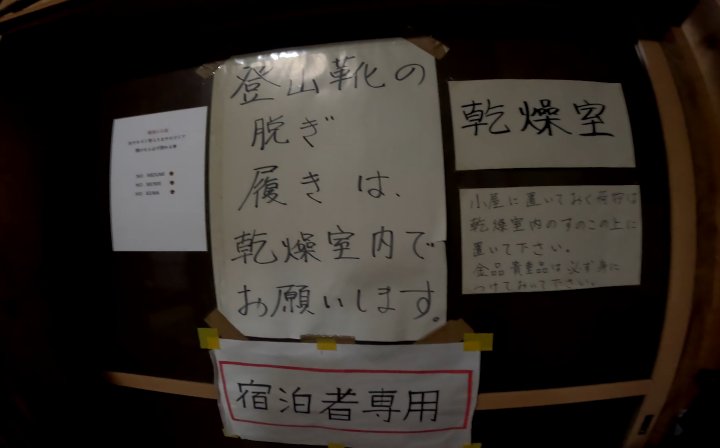 登山靴の
脱ぎ
履きは、
乾燥室内で
お願いします。
宿泊者専用
乾燥室
小屋に置いておく荷物は
乾燥室内のすのこの上に
置いて下さい。
金品貴重品は必ず身に
つけておいて下さい。
NO NEZUMI